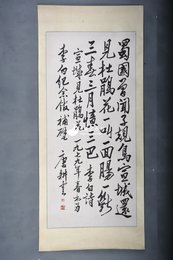 蜀國曾聞子規鳥宣城還
見杜鵑花一叫一回腸一斷
三春三月憶三巴 李白詩
宣城見杜鵑花 一九七九年春
李白紀念館補壁 唐耕